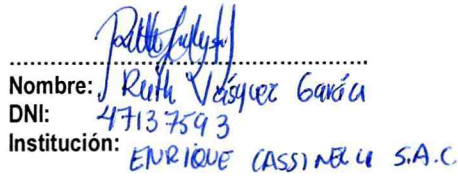 Nombre: Ruth Vásquez García
DNI: 47137593
Institución: ENRIQUE CASSINELLI S.A.C.